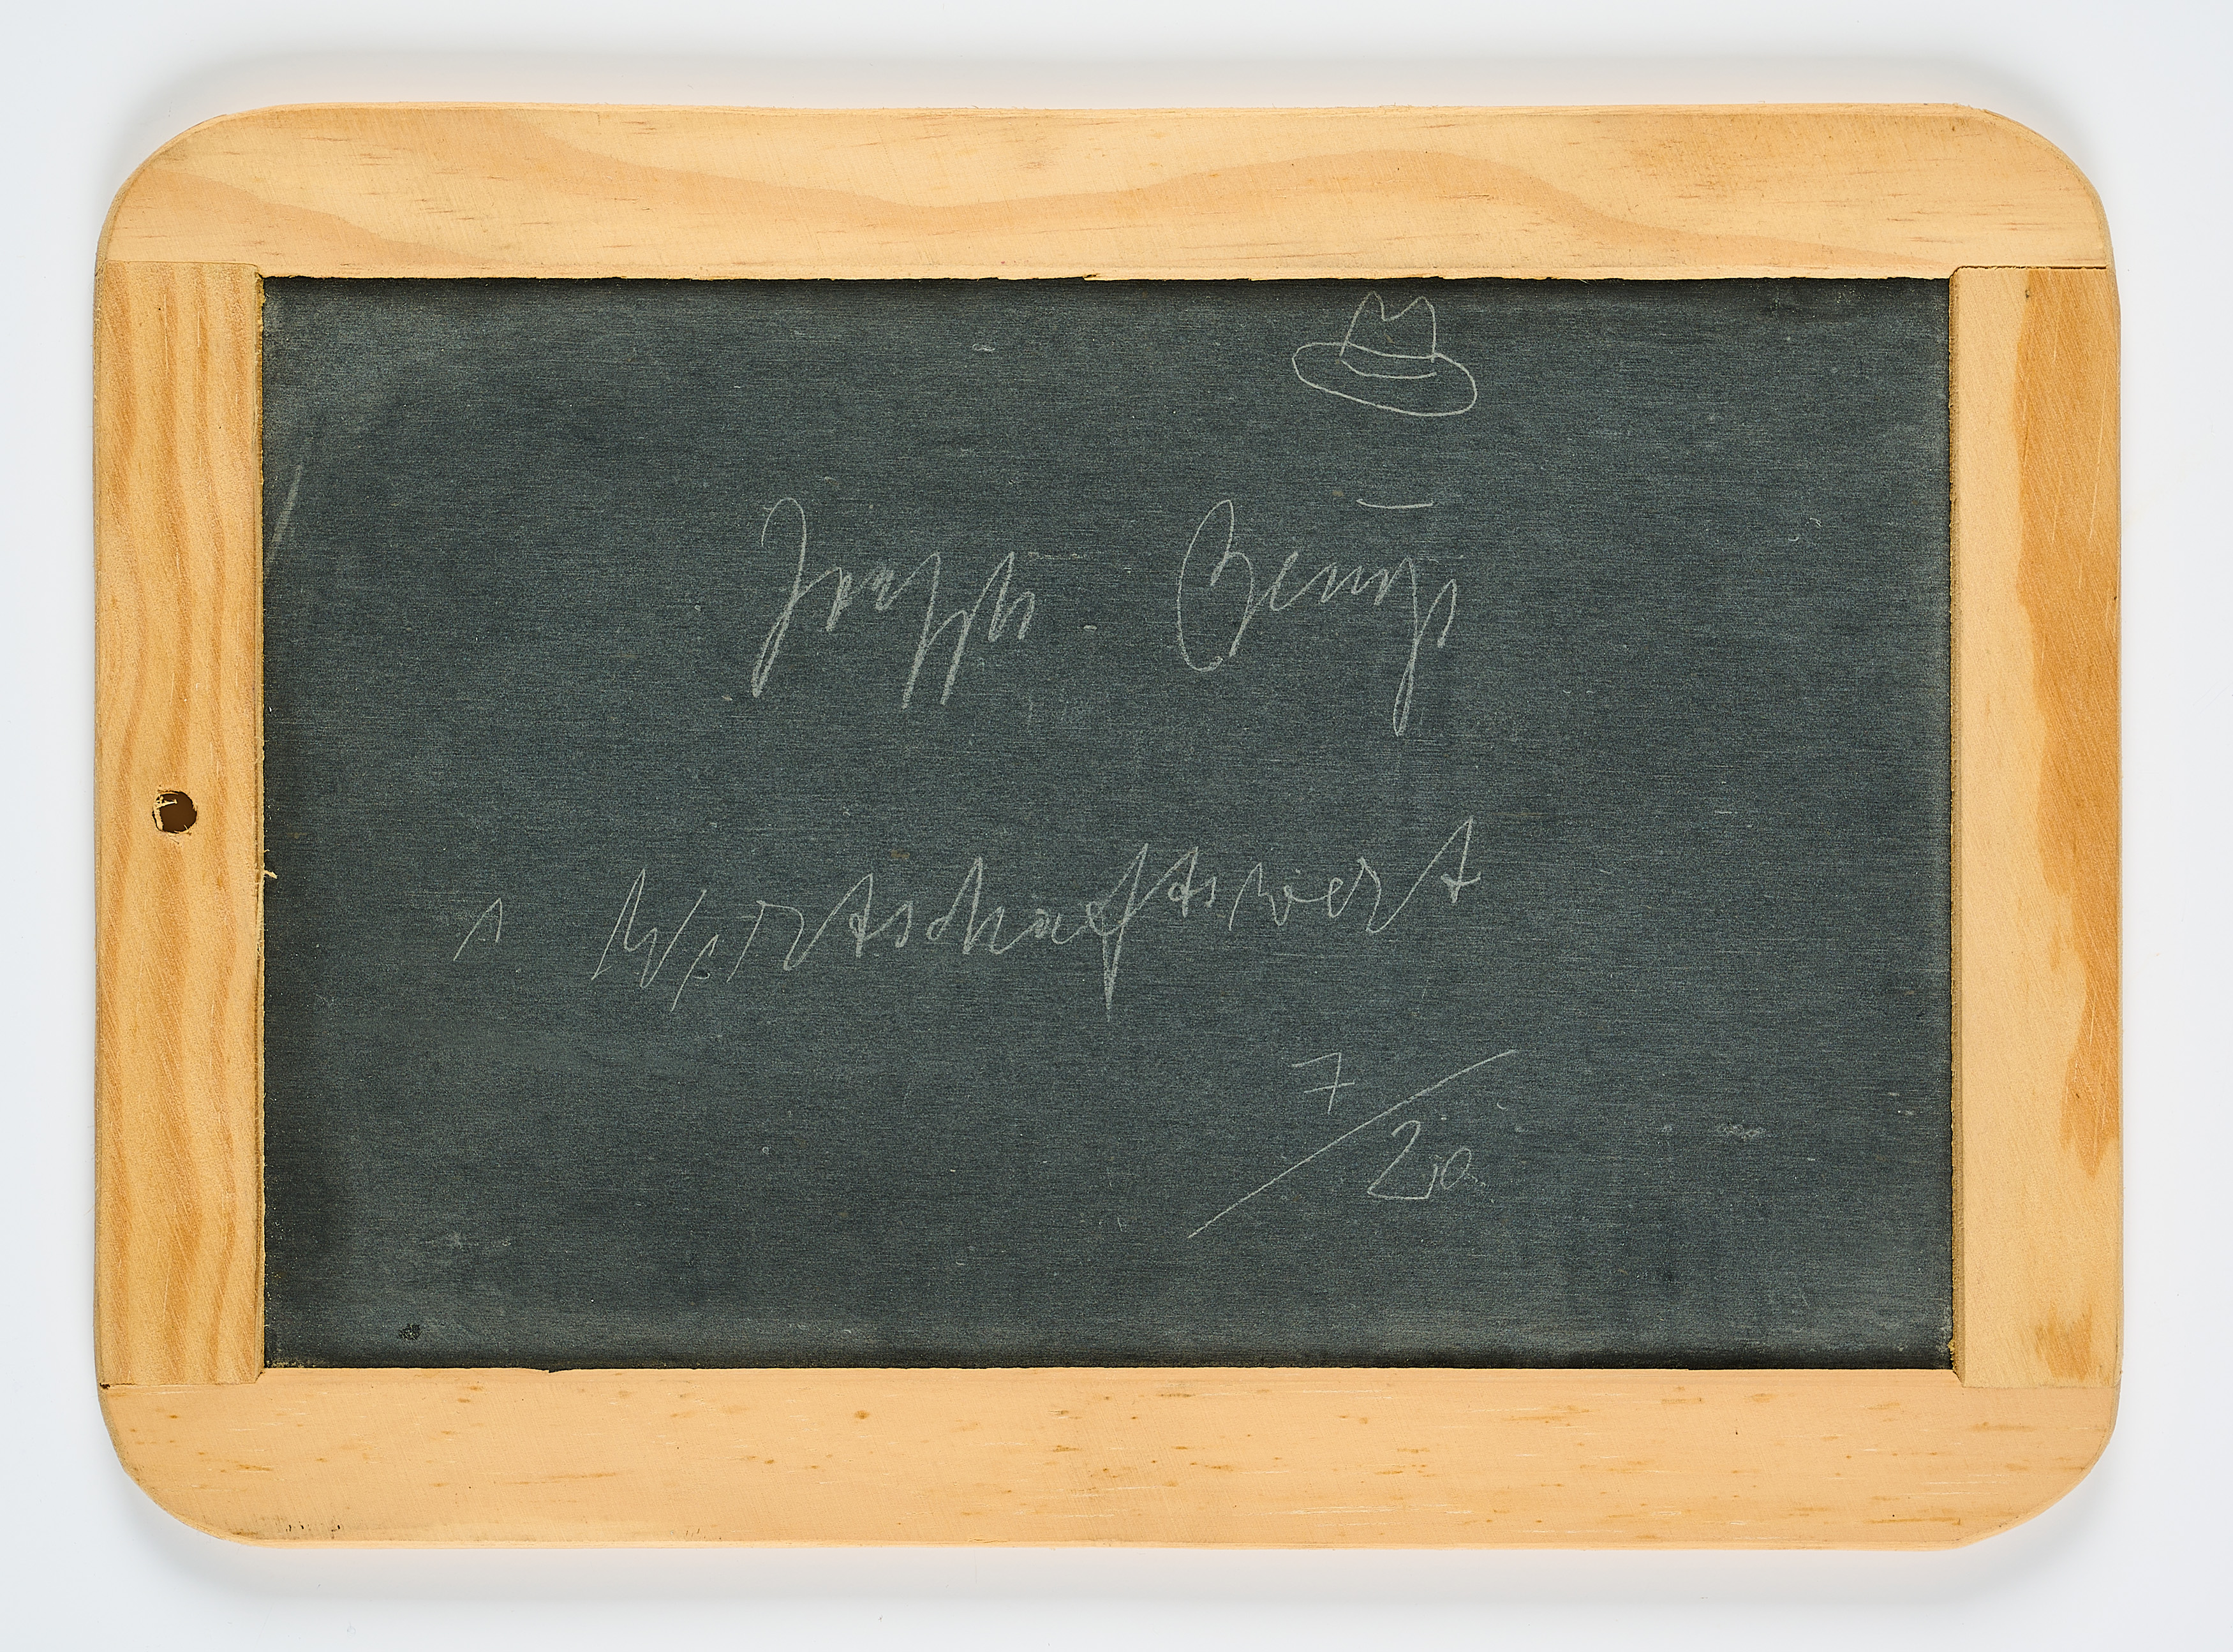 Joseph Beuys
1 Wirtschaftswert
7/20